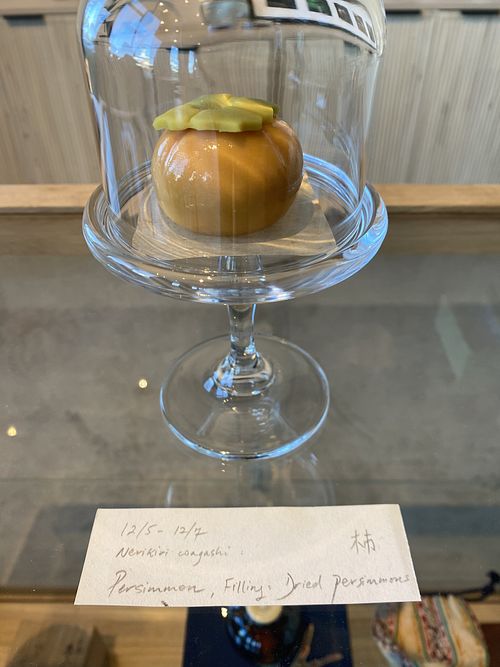 12/5 - 12/7
柿
Nerikiri wagashi :
Persimmon, Filling: Dried persimmons